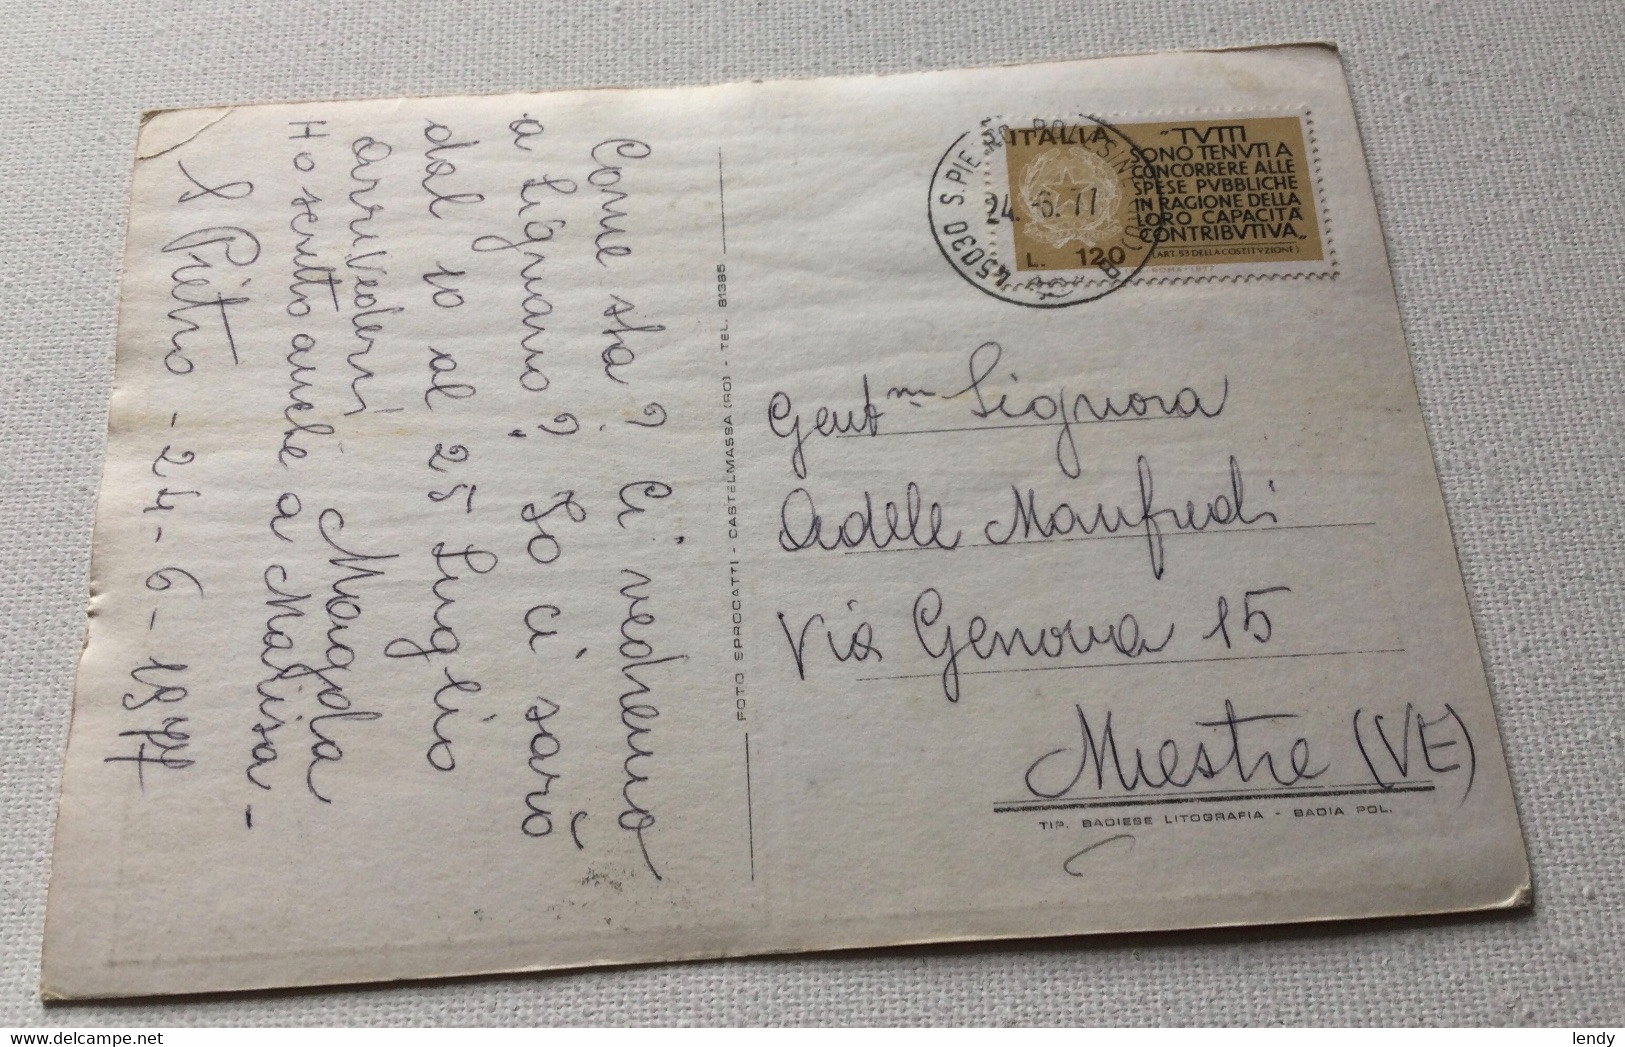 Come sta? Ci vedremo
a Lignano? Io ci sarò
dal 10 al 25 Luglio
arrivederci
Magda
Ho scritto anche a Marisa -
S Pietro - 24 - 6 - 1977
FOTO SPROCATTI - CASTELMASSA (RO) - TEL. 81385
ITALIA
"TVTTI
SONO TENVTI A
CONCORRERE ALLE
SPESE PVBBLICHE
IN RAGIONE DELLA
LORO CAPACITÀ
CONTRIBVTIVA"
(ART. 53 DELLA COSTITVZIONE)
L. 120
ROMA - 1977
45030 S. PIE
24. -6. 77
Gent.ma Signora
Adele Manfredi
Via Genova 15
Mestre (VE)
TIP. BADIESE LITOGRAFIA - BADIA POL.
lendy